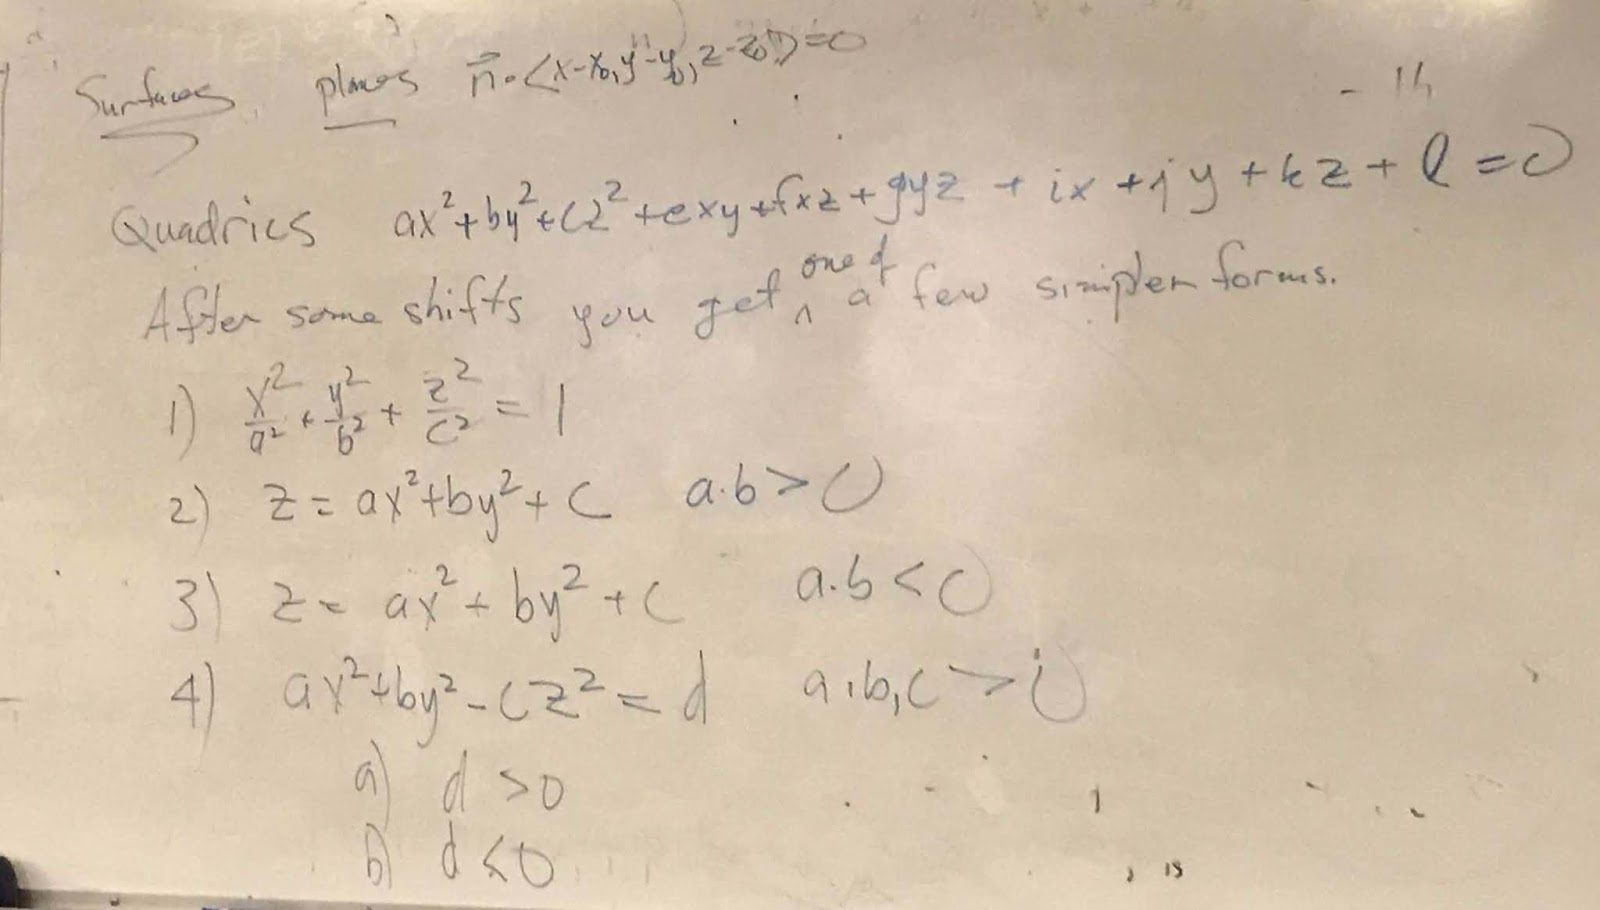 Surfaces planes n⃗·⟨x-x₀, y-y₀, z-z₀⟩=0
Quadrics ax²+by²+cz²+exy+fxz+gyz+ix+jy+kz+l=0
After some shifts you get one of a few simpler forms.
1) x²/a² + y²/b² + z²/c² = 1
2) z = ax²+by²+c a·b>0
3) z = ax²+by²+c a·b<0
4) ax²+by²-cz²=d a,b,c>0
a) d>0
b) d<0